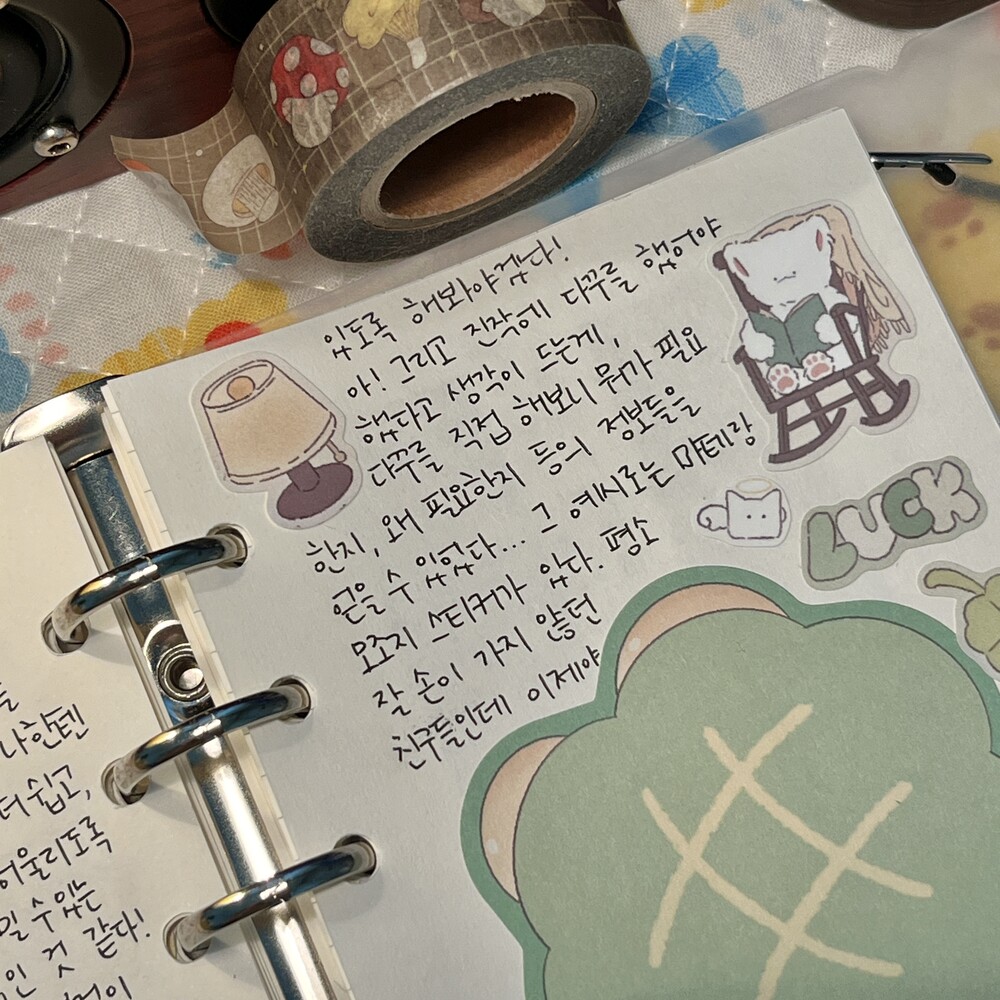 나한텐
더 쉽고,
어울리도록
수 있는
것 같다!
있도록 해봐야겠다!
아! 그리고 진작에 다꾸를 했어야
했다고 생각이 드는게,
다꾸를 직접 해보니 뭐가 필요
한지, 왜 필요한지 등의 정보들을
얻을 수 있었다... 그 예시로는 마테랑
모조지 스티커가 있다. 평소
잘 손이 가지 않던
친구들인데 이제야
LUCK